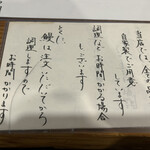 当店では、全て
自家製でご用意
しています
調理などで
お時間かかる場合
もございます
とくに
鰻は注文いただいてから
調理しますので
お時間かかります